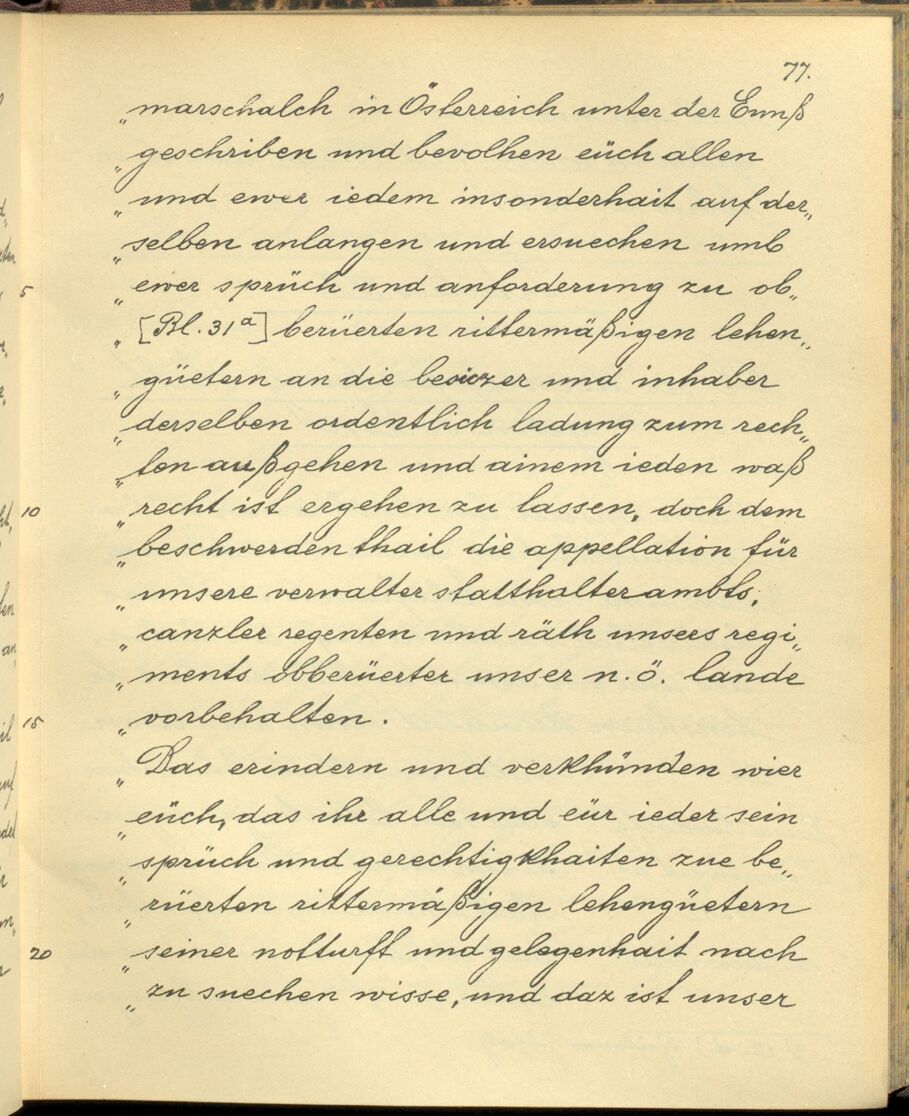 77.
„marschalch in Österreich unter der Ennß
„geschriben und bevolhen eüch allen
„und ewer iedem insonderhait auf der„
„selben anlangen und ersuechen umb
5 „ewer sprüch und anforderung zu ob„
„[Bl. 31a] berüerten rittermäßigen lehen„
„güetern an die besiczer und inhaber
„derselben ordentlich ladung zum rech„
„ten außgehen und ainem ieden waß
10 „recht ist ergehen zu lassen, doch dem
„beschwerden thail die appellation für
„unsere verwalter statthalterambts,
„canzler regenten und räth unsers regi„
„ments obberüerter unser n. ö. lande
15 „vorbehalten.
„Das erindern und verkhünden wier
„eüch, das ihr alle und eür ieder sein
„sprüch und gerechtigkhaiten zue be„
„rüerten rittermäßigen lehengüetern
20 „seiner notturfft und gelegenhait nach
„zu suechen wisse, und daz ist unser